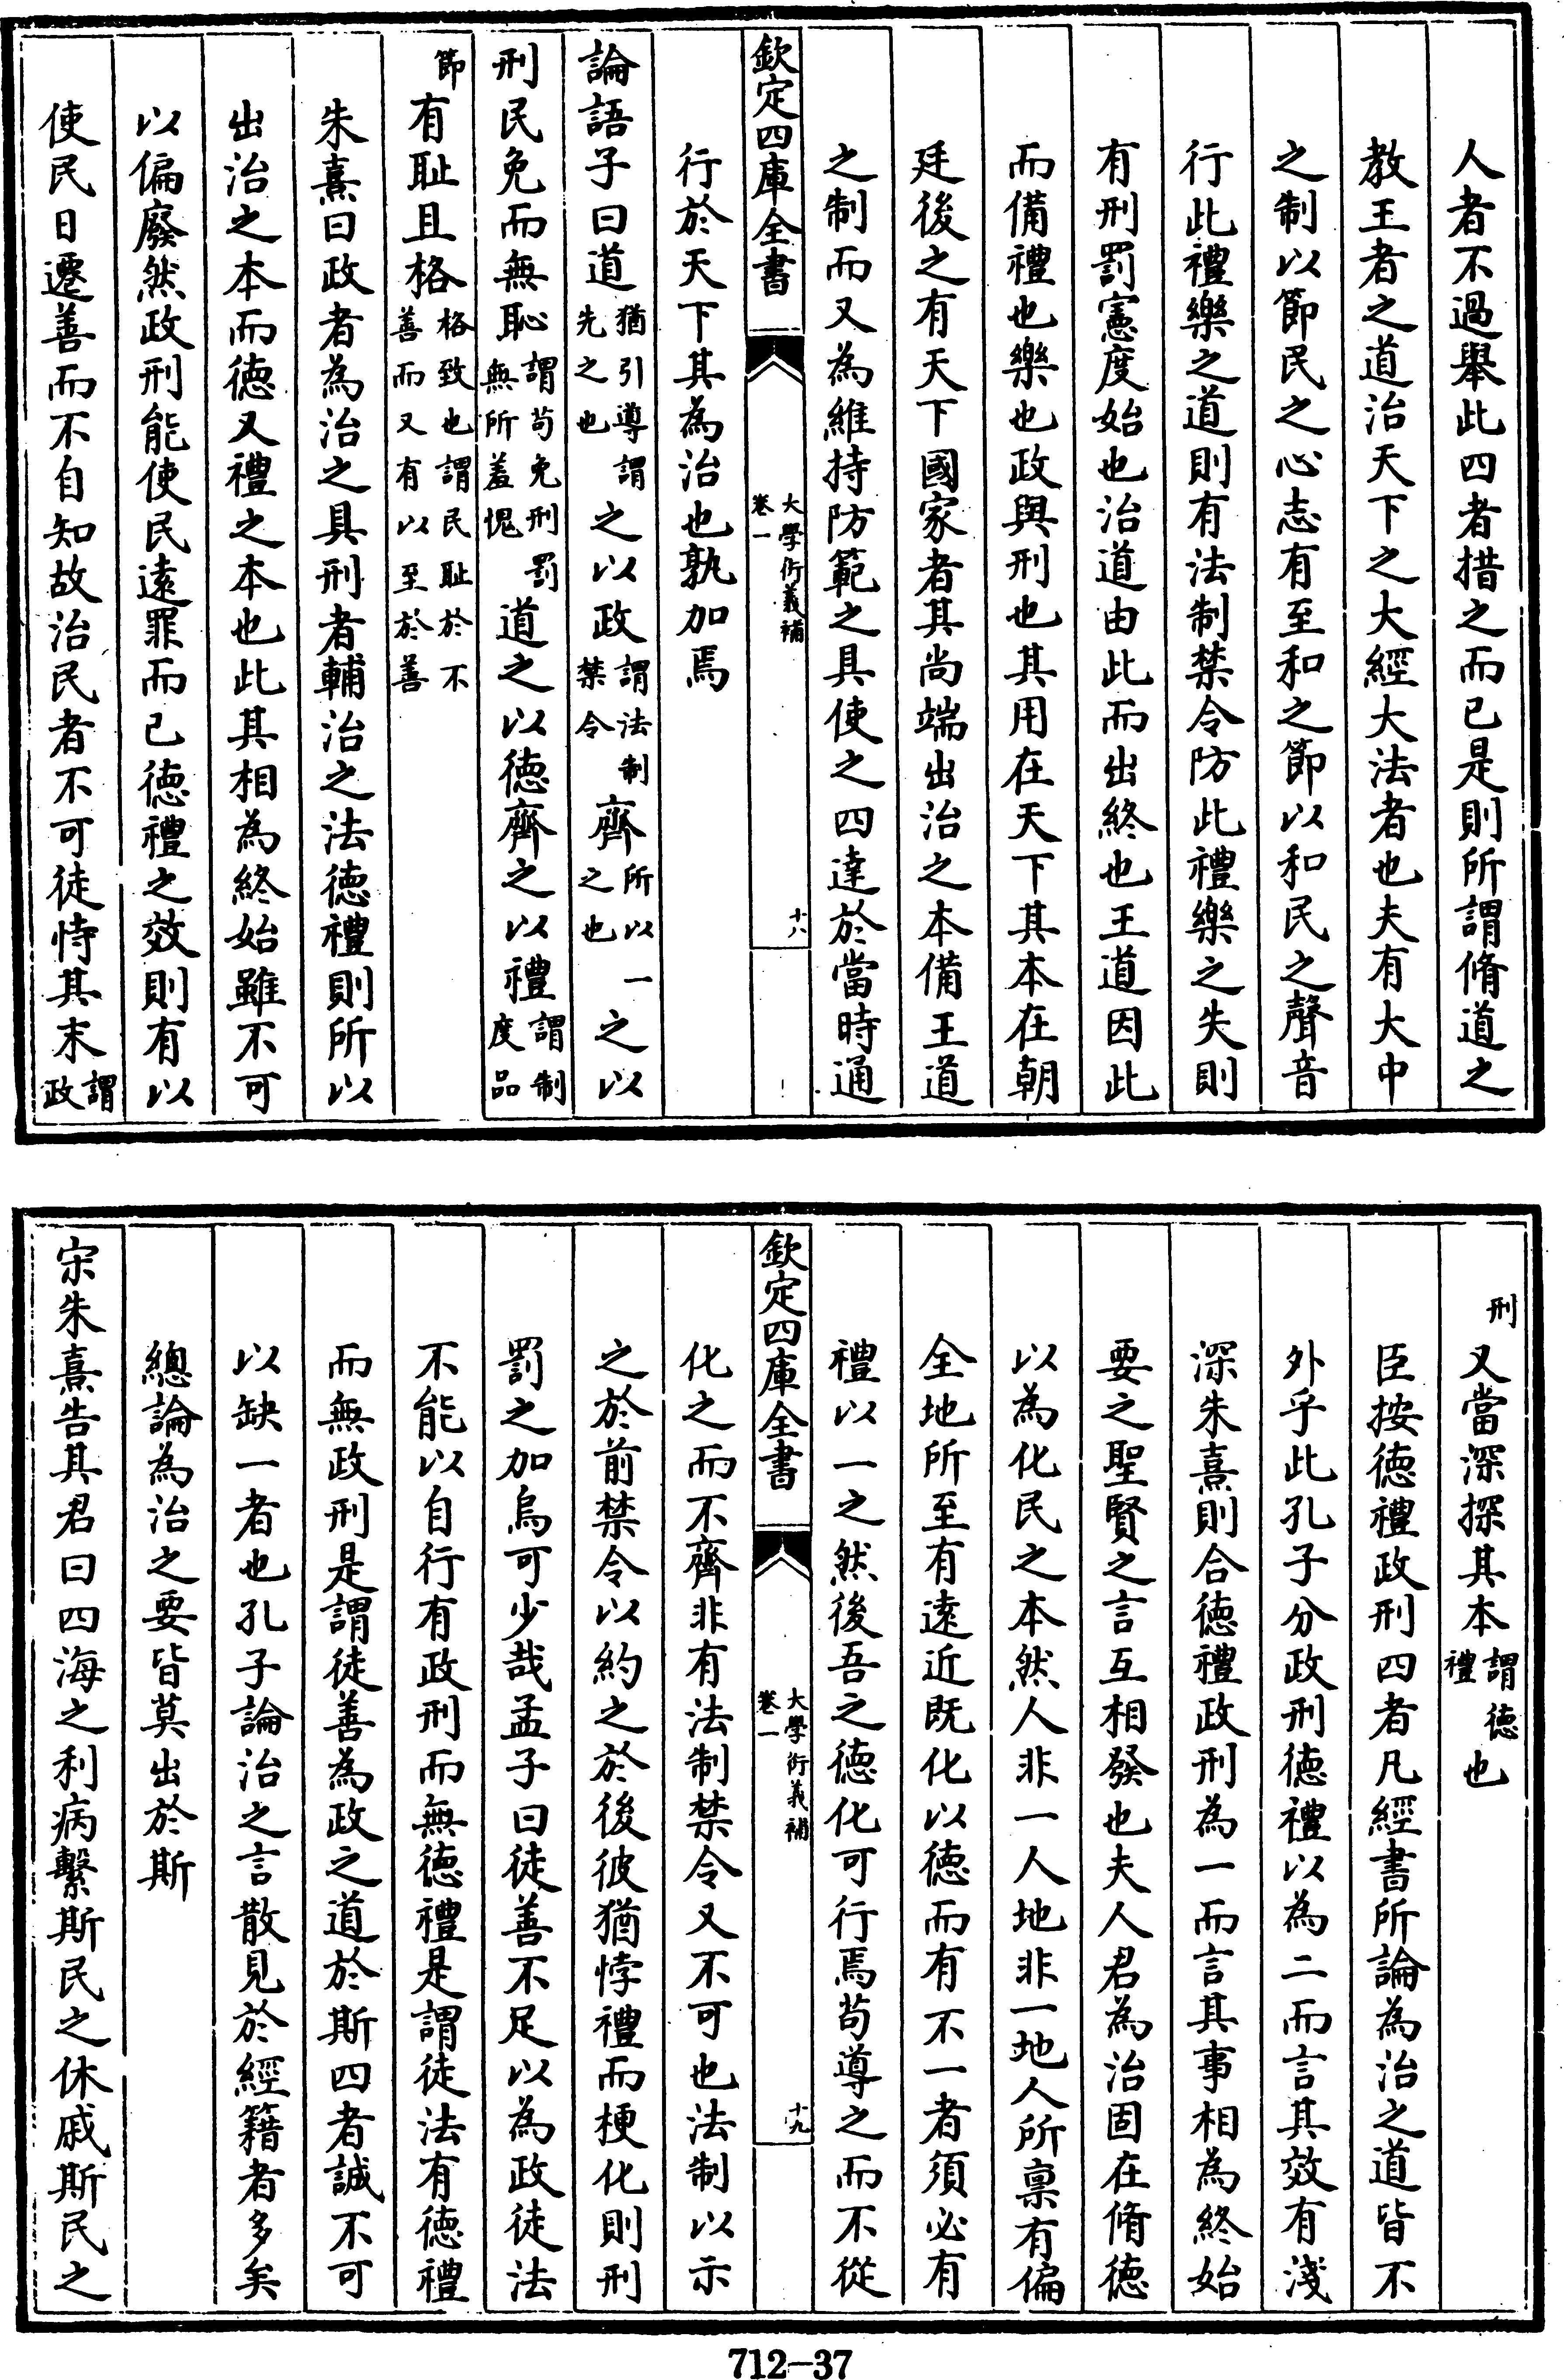 人者不過舉此四者措之而已是則所謂脩道之
教王者之道治天下之大經大法者也夫有大中
之制以節民之心志有至和之節以和民之聲音
行此禮樂之道則有法制禁令防此禮樂之失則
有刑罰憲度始也治道由此而出終也王道因此
而備禮也樂也政與刑也其用在天下其本在朝
廷後之有天下國家者其尚端出治之本備王道
之制而又為維持防範之具使之四達於當時通
欽定四庫全書
大學衍義補
卷一
十八
行於天下其為治也孰加焉
論語子曰道猶引導謂先之也之以政謂法制禁令齊所以一之也之以
刑民免而無恥謂苟免刑罰無所羞愧道之以德齊之以禮謂制度品
節有恥且格格致也謂民恥於不善而又有以至於善
朱熹曰政者為治之具刑者輔治之法德禮則所以
出治之本而德又禮之本也此其相為終始雖不可
以偏廢然政刑能使民遠罪而已德禮之效則有以
使民日遷善而不自知故治民者不可徒恃其末謂政
刑又當深探其本謂德禮也
臣按德禮政刑四者凡經書所論為治之道皆不
外乎此孔子分政刑德禮以為二而言其效有淺
深朱熹則合德禮政刑為一而言其事相為終始
要之聖賢之言互相發也夫人君為治固在脩德
以為化民之本然人非一人地非一地人所稟有偏
全地所至有遠近既化以德而有不一者須必有
禮以一之然後吾之德化可行焉苟導之而不從
欽定四庫全書
大學衍義補
卷一
十九
化之而不齊非有法制禁令又不可也法制以示
之於前禁令以約之於後彼猶悖禮而梗化則刑
罰之加烏可少哉孟子曰徒善不足以為政徒法
不能以自行有政刑而無德禮是謂徒法有德禮
而無政刑是謂徒善為政之道於斯四者誠不可
以缺一者也孔子論治之言散見於經籍者多矣
總論為治之要皆莫出於斯
宋朱熹告其君曰四海之利病繫斯民之休戚斯民之
712-37